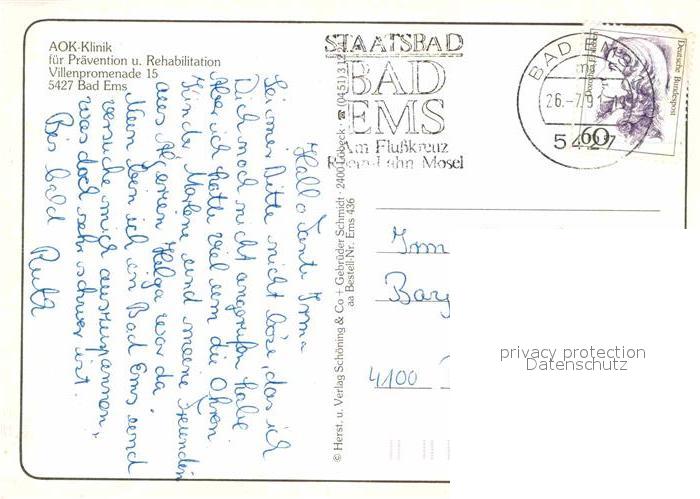 AOK-Klinik
für Prävention u. Rehabilitation
Villenpromenade 15
5427 Bad Ems
STAATSBAD
BAD
EMS
Am Flußkreuz
Rhein-Lahn Mosel
BAD EMS
26.-7.91
5427
Deutsche Bundespost
60
Hallo Tante Irma
Sei mir bitte nicht böse, das ich
Dich noch nicht angerufen habe
Aber ich hatte viel um die Ohren.
Kinder Marlene und meine Freundin
aus Helga war da.
Nun bin ich in Bad Ems und
versuche mich auszuspannen,
was doch sehr schwer ist.
Bis bald Ruth
© Herst. u. Verlag Schöning & Co + Gebrüder Schmidt · 2400 Lübeck · ☎ (0451) 3 12
aa Bestell-Nr. Ems 436
Irm
Bay
4100
privacy protection
Datenschutz